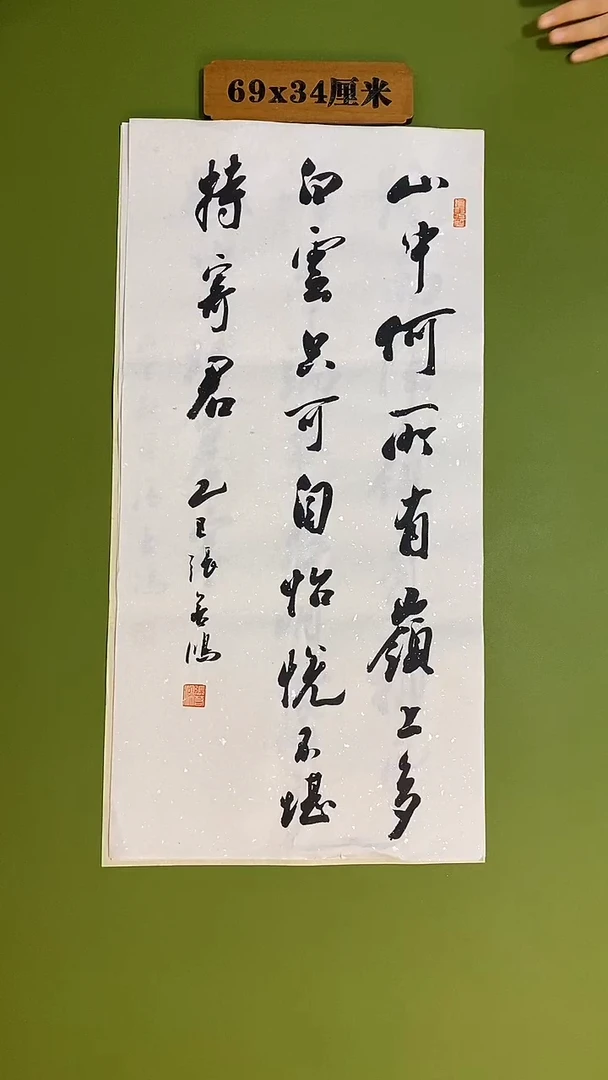 69x34厘米
山中何所有嶺上多
白雲只可自怡悅不堪
持寄君
乙巳張善鴻